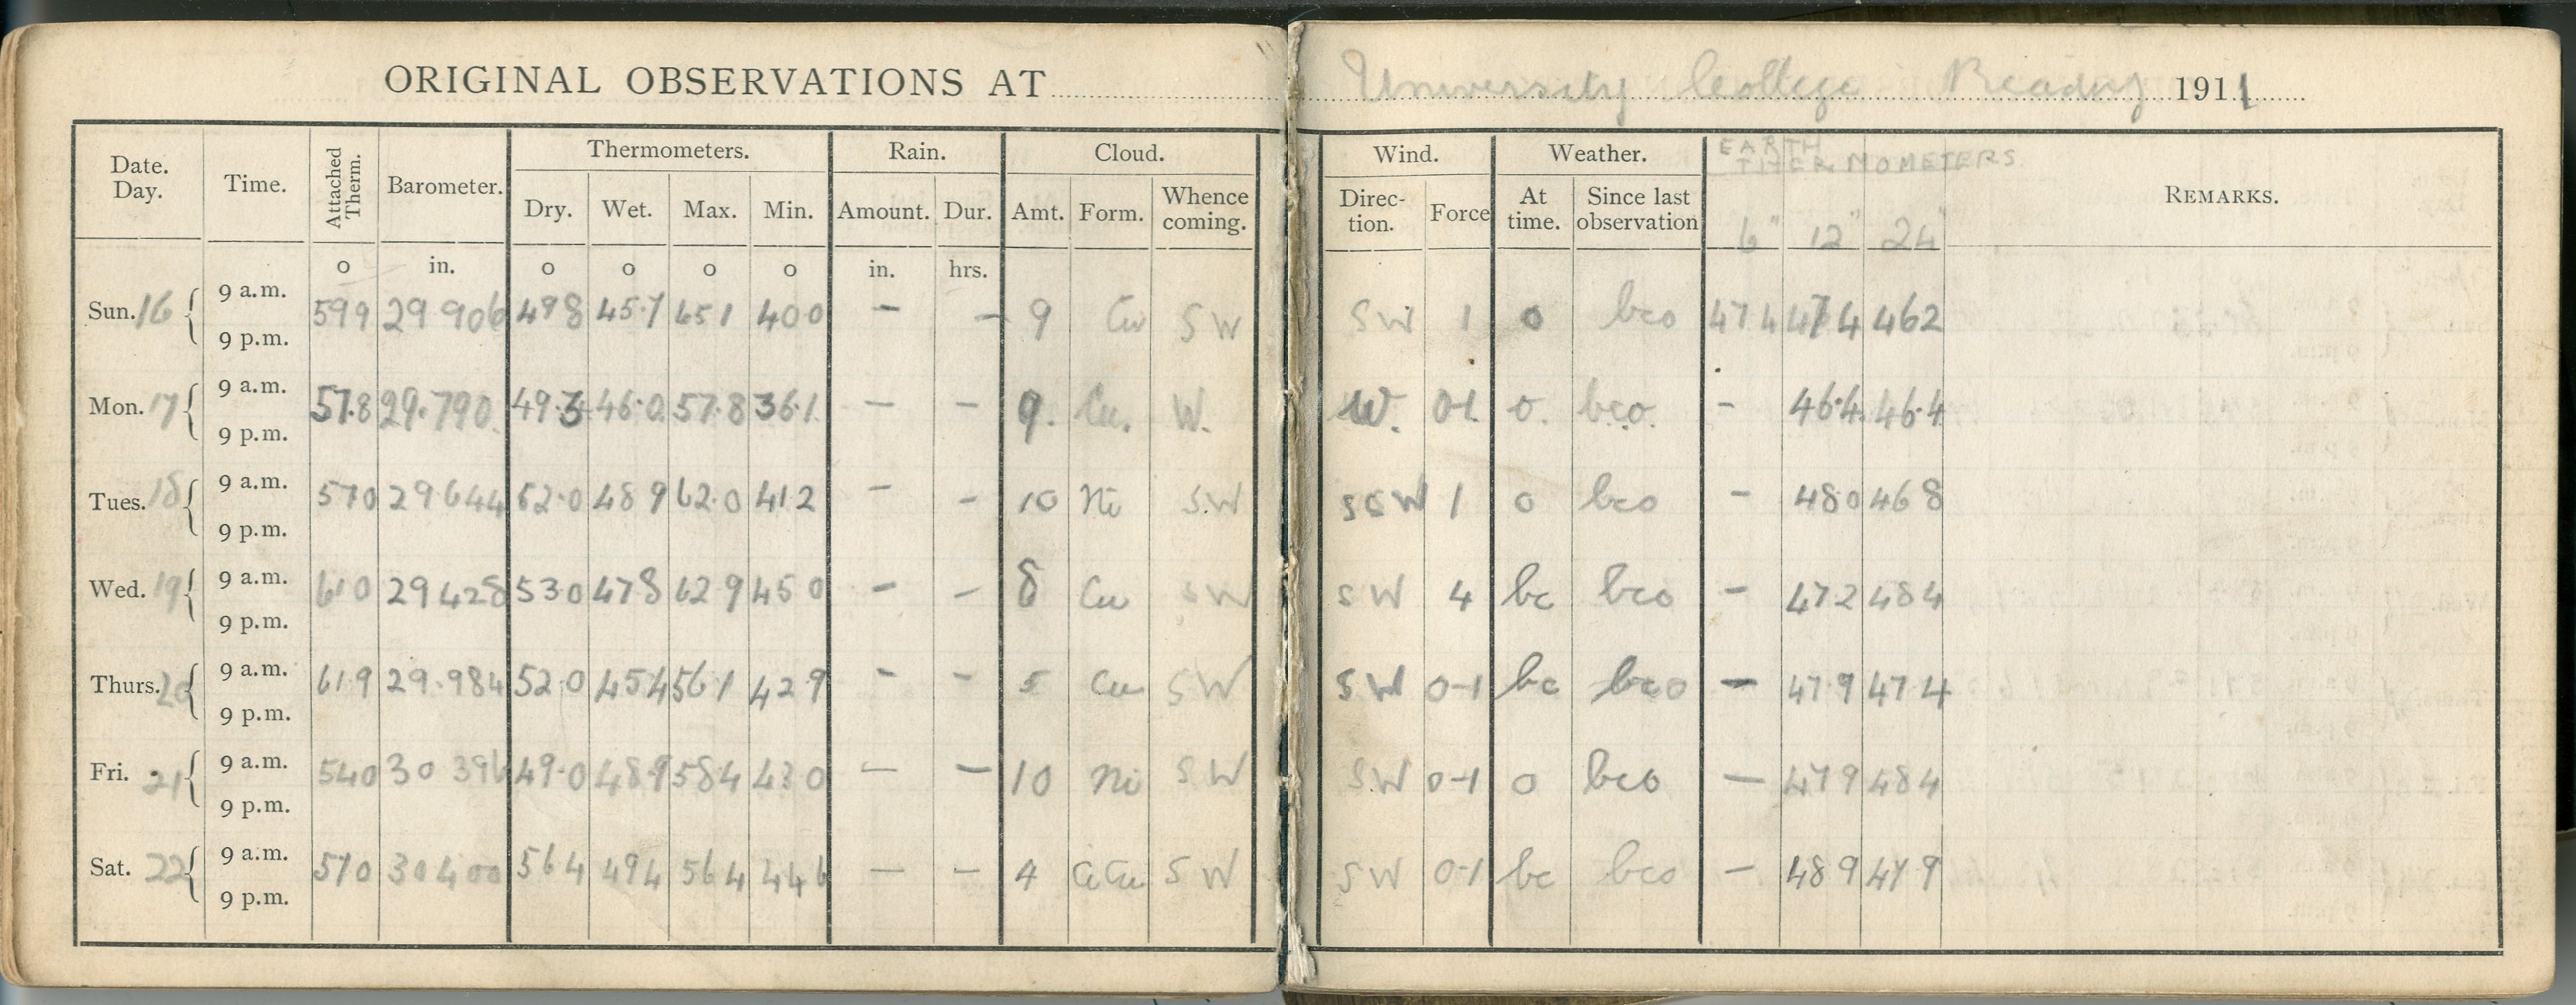 ORIGINAL OBSERVATIONS AT University College Reading 1911
Date. Day. Time. Attached Therm. Barometer. Thermometers. Rain. Cloud. Wind. Weather. EARTH THERMOMETERS REMARKS.
Dry. Wet. Max. Min. Amount. Dur. Amt. Form. Whence coming. Direc- tion. Force At time. Since last observation 6" 12" 24"
o in. o o o o in. hrs.
Sun. 16 9 a.m. 59 9 29 906 49 8 45.7 65 1 40 0 - - 9 Cu SW SW 1 o bco 47 4 47 4 46 2
9 p.m.
Mon. 17 9 a.m. 57.8 29.790 49.3 46.0 57.8 36.1 - - 9. Cu. W. W. 0-1 o. bco. - 46.4 46.4
9 p.m.
Tues. 18 9 a.m. 57 0 29 644 52.0 48 9 62.0 41 2 - - 10 Ni SW SSW 1 o bco - 48 0 46 8
9 p.m.
Wed. 19 9 a.m. 61 0 29 428 53 0 47 8 62 9 45 0 - - 8 Cu SW SW 4 bc bco - 47 2 48 4
9 p.m.
Thurs. 20 9 a.m. 61 9 29.984 52 0 45 4 56 1 42 9 - - 5 Cu SW SW 0-1 bc bco - 47 9 47 4
9 p.m.
Fri. 21 9 a.m. 54 0 30 396 49.0 48.9 58 4 43 0 - - 10 Ni SW SW 0-1 o bco - 47 9 48 4
9 p.m.
Sat. 22 9 a.m. 57 0 30 400 56 4 49 4 56 4 44 6 - - 4 CiCu SW SW 0-1 bc bco - 48 9 47 9
9 p.m.